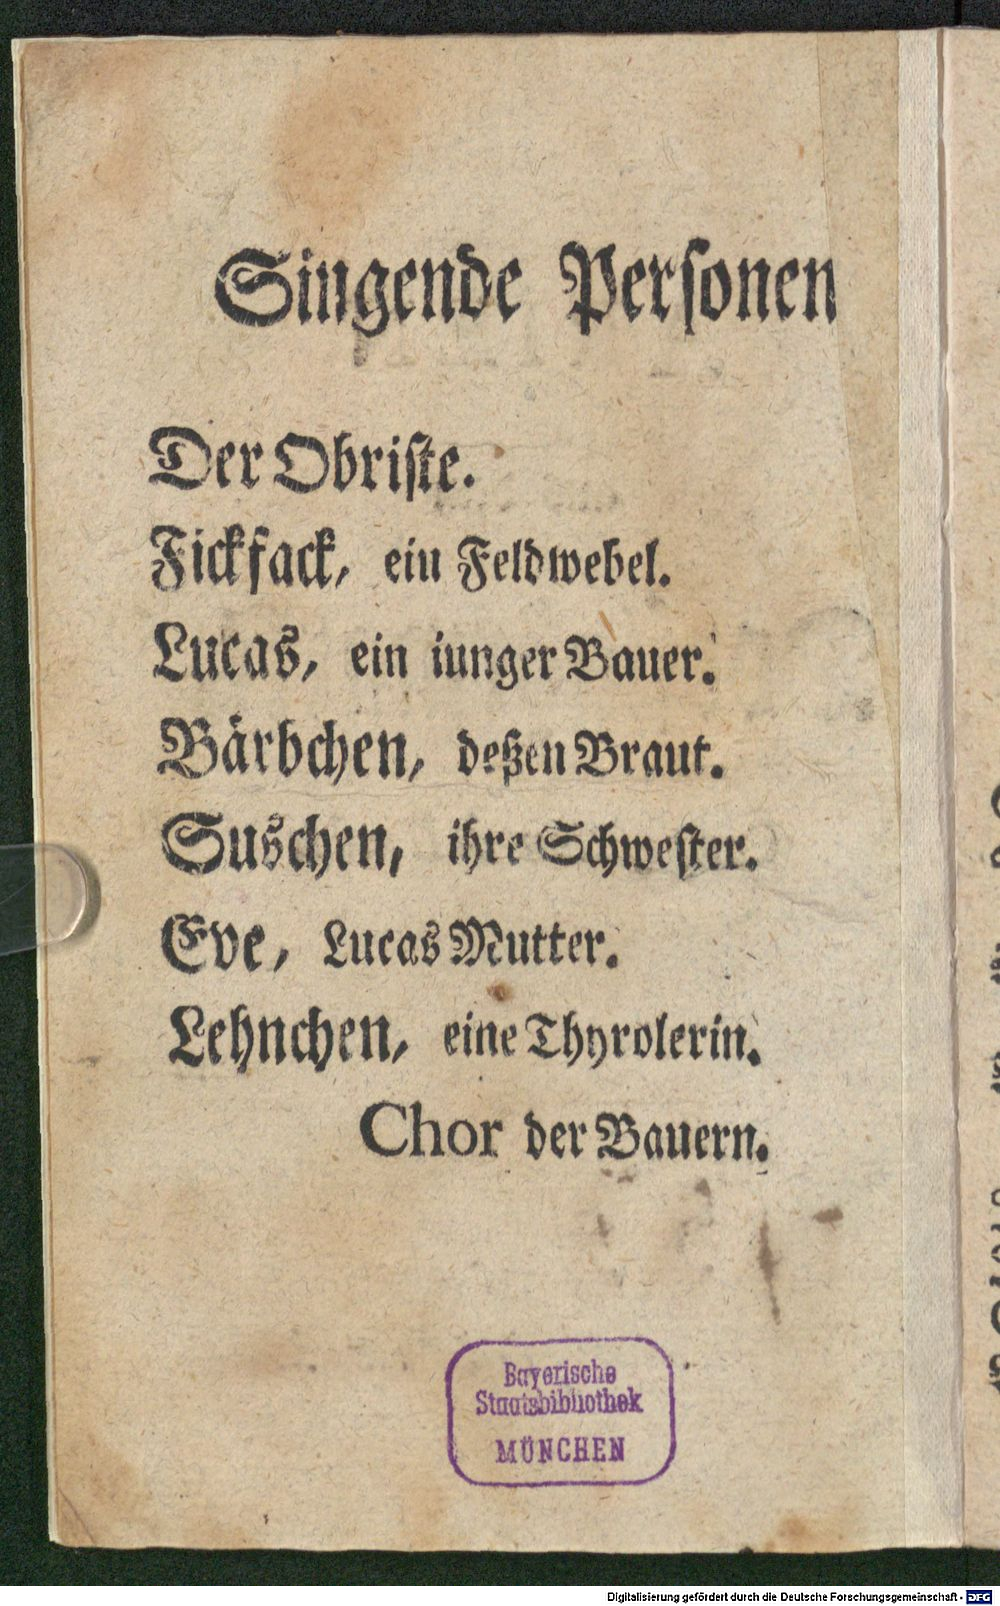 Singende Personen
Der Obriste.
Fickfack, ein Feldwebel.
Lucas, ein iunger Bauer.
Bärbchen, deßen Braut.
Suschen, ihre Schwester.
Eve, Lucas Mutter.
Lehnchen, eine Thyrolerin.
Chor der Bauern.
Bayerische
Staatsbibliothek
MÜNCHEN
Digitalisierung gefördert durch die Deutsche Forschungsgemeinschaft - DFG